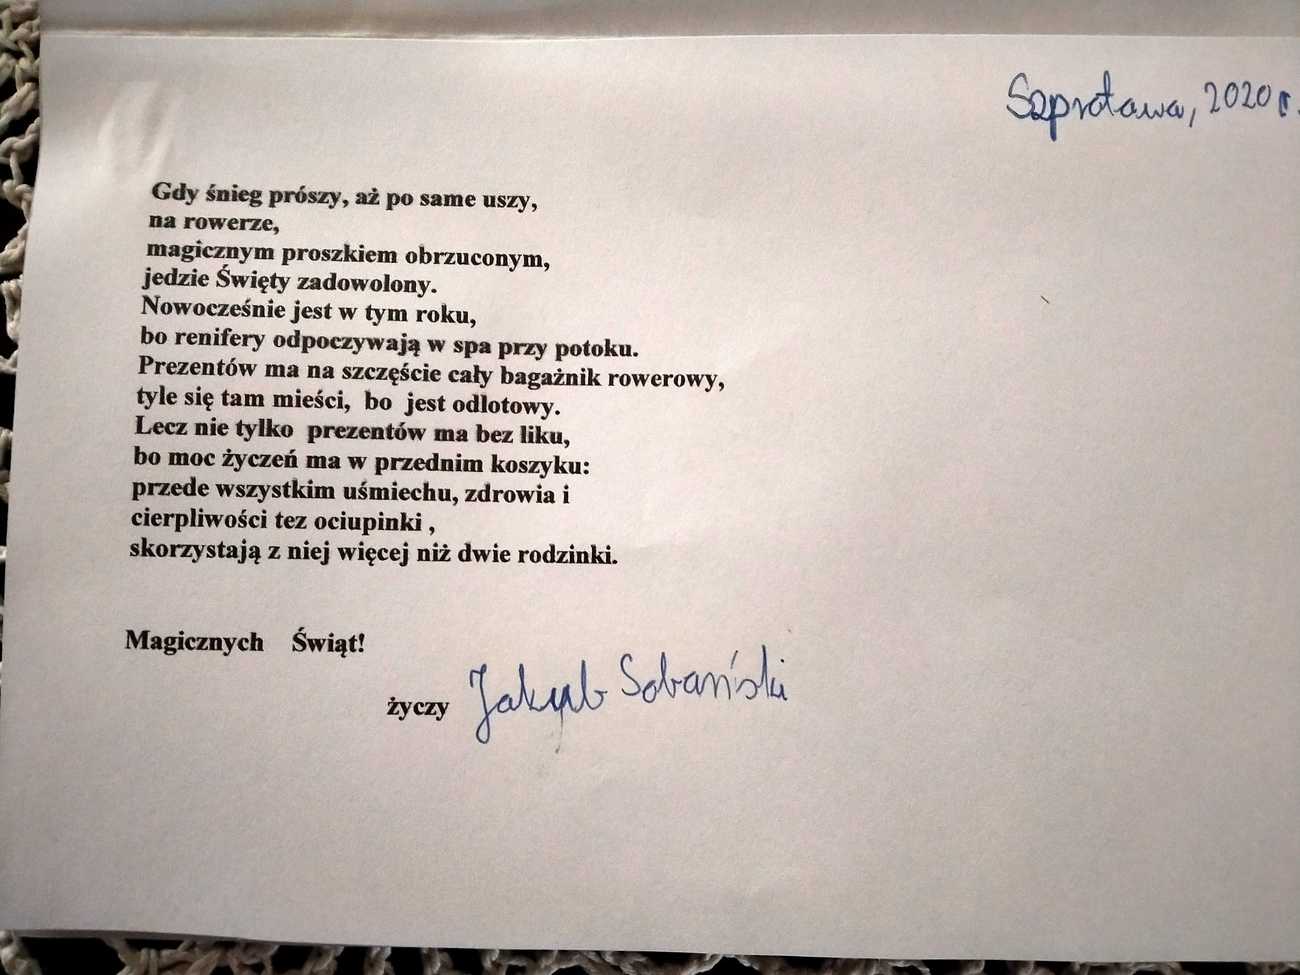 Szprotawa, 2020 r.
Gdy śnieg prószy, aż po same uszy,
na rowerze,
magicznym proszkiem obrzuconym,
jedzie Święty zadowolony.
Nowocześnie jest w tym roku,
bo renifery odpoczywają w spa przy potoku.
Prezentów ma na szczęście cały bagażnik rowerowy,
tyle się tam mieści,  bo  jest odlotowy.
Lecz nie tylko  prezentów ma bez liku,
bo moc życzeń ma w przednim koszyku:
przede wszystkim uśmiechu, zdrowia i
cierpliwości tez ociupinki ,
skorzystają z niej więcej niż dwie rodzinki.
Magicznych    Świąt!
życzy Jakub Sobański